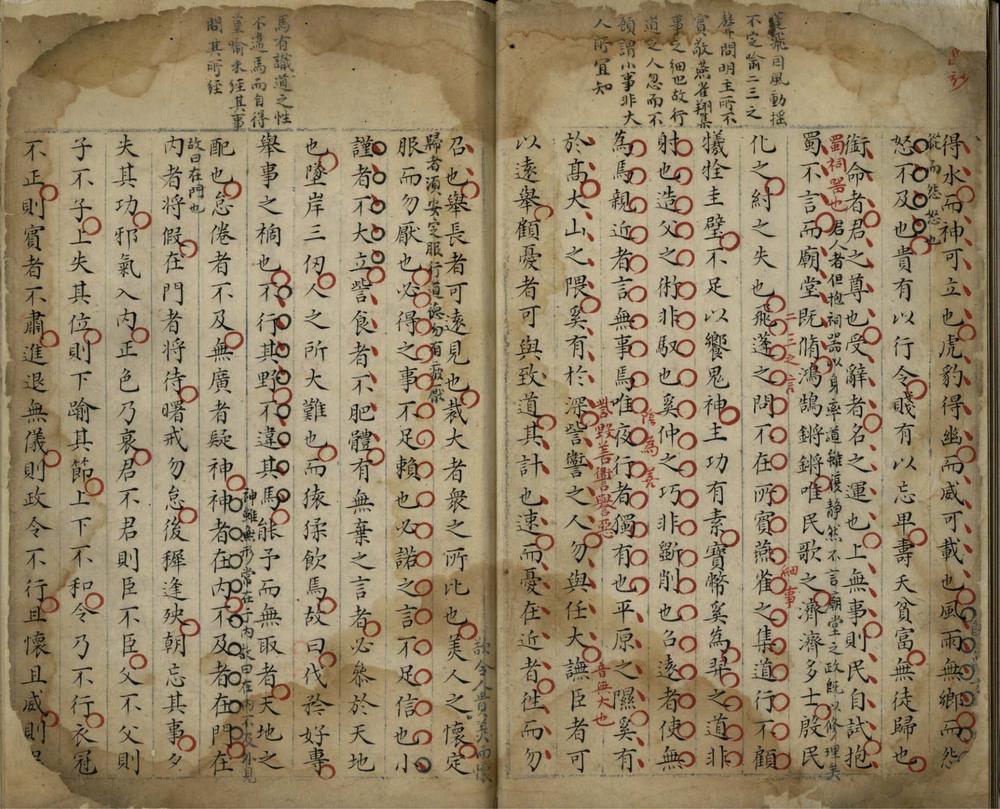 蓬飛因風動揺
不定喻二三之
聲問明主所不
賓敬燕雀翔集
事之細也故行
道之人忽而不
顧謂小事非大
人所宜知
得水而神可立也虎豹得幽而威可載也風雨無鄉而怨
從而怨怒也
怒不及也貴有以行令賤有以忘卑壽夭貧富無徒歸也
銜命者君之尊也受辭者名之運也上無事則民自試抱
蜀祠器也君人者但抱祠器以身率道雖復静然不言廟堂之政既以修理矣
蜀不言而廟堂既脩鴻鵠鏘鏘唯民歌之濟濟多士殷民
二三之言
化之紂之失也飛蓬之問不在所賓燕雀之集道行不顧
細事
犧牲圭璧不足以饗鬼神主功有素寶幣奚為羿之道非
射也造父之術非馭也奚仲之巧非斲削也召遠者使無
為焉親近者言無事焉唯夜行者獨有也平原之隰奚有
訾毀善讆譽惡
音無大也
於高大山之隈奚有於深訾讆之人勿與任大譕臣者可
以遠舉顧憂者可與致道其計也速而憂在近者徃而勿
馬有識道之性
不違馬而自得
塗喻未經其事
問其所經
召也舉長者可遠見也裁大者衆之所比也美人之懷定
歸者須安定服行道德勿有疲厭
服而勿厭也必得之事不足賴也必諾之言不足信也小
謹者不大立訾食者不肥體有無棄之言者必叅於天地
也墜岸三仞人之所大難也而猿猱飲焉故曰伐矜好專
舉事之禍也不行其野不違其馬能予而無取者天地之
配也怠倦者不及無廣者疑神神者在内不及者在門在
神雖無形常在于内故曰在内不及外見
故曰在門也
内者將假在門者將待曙戒勿怠後穉逢殃朝忘其事夕
失其功邪氣入内正色乃衰君不君則臣不臣父不父則
子不子上失其位則下踰其節上下不和令乃不行衣冠
不正則賓者不肅進退無儀則政令不行且懷且威則